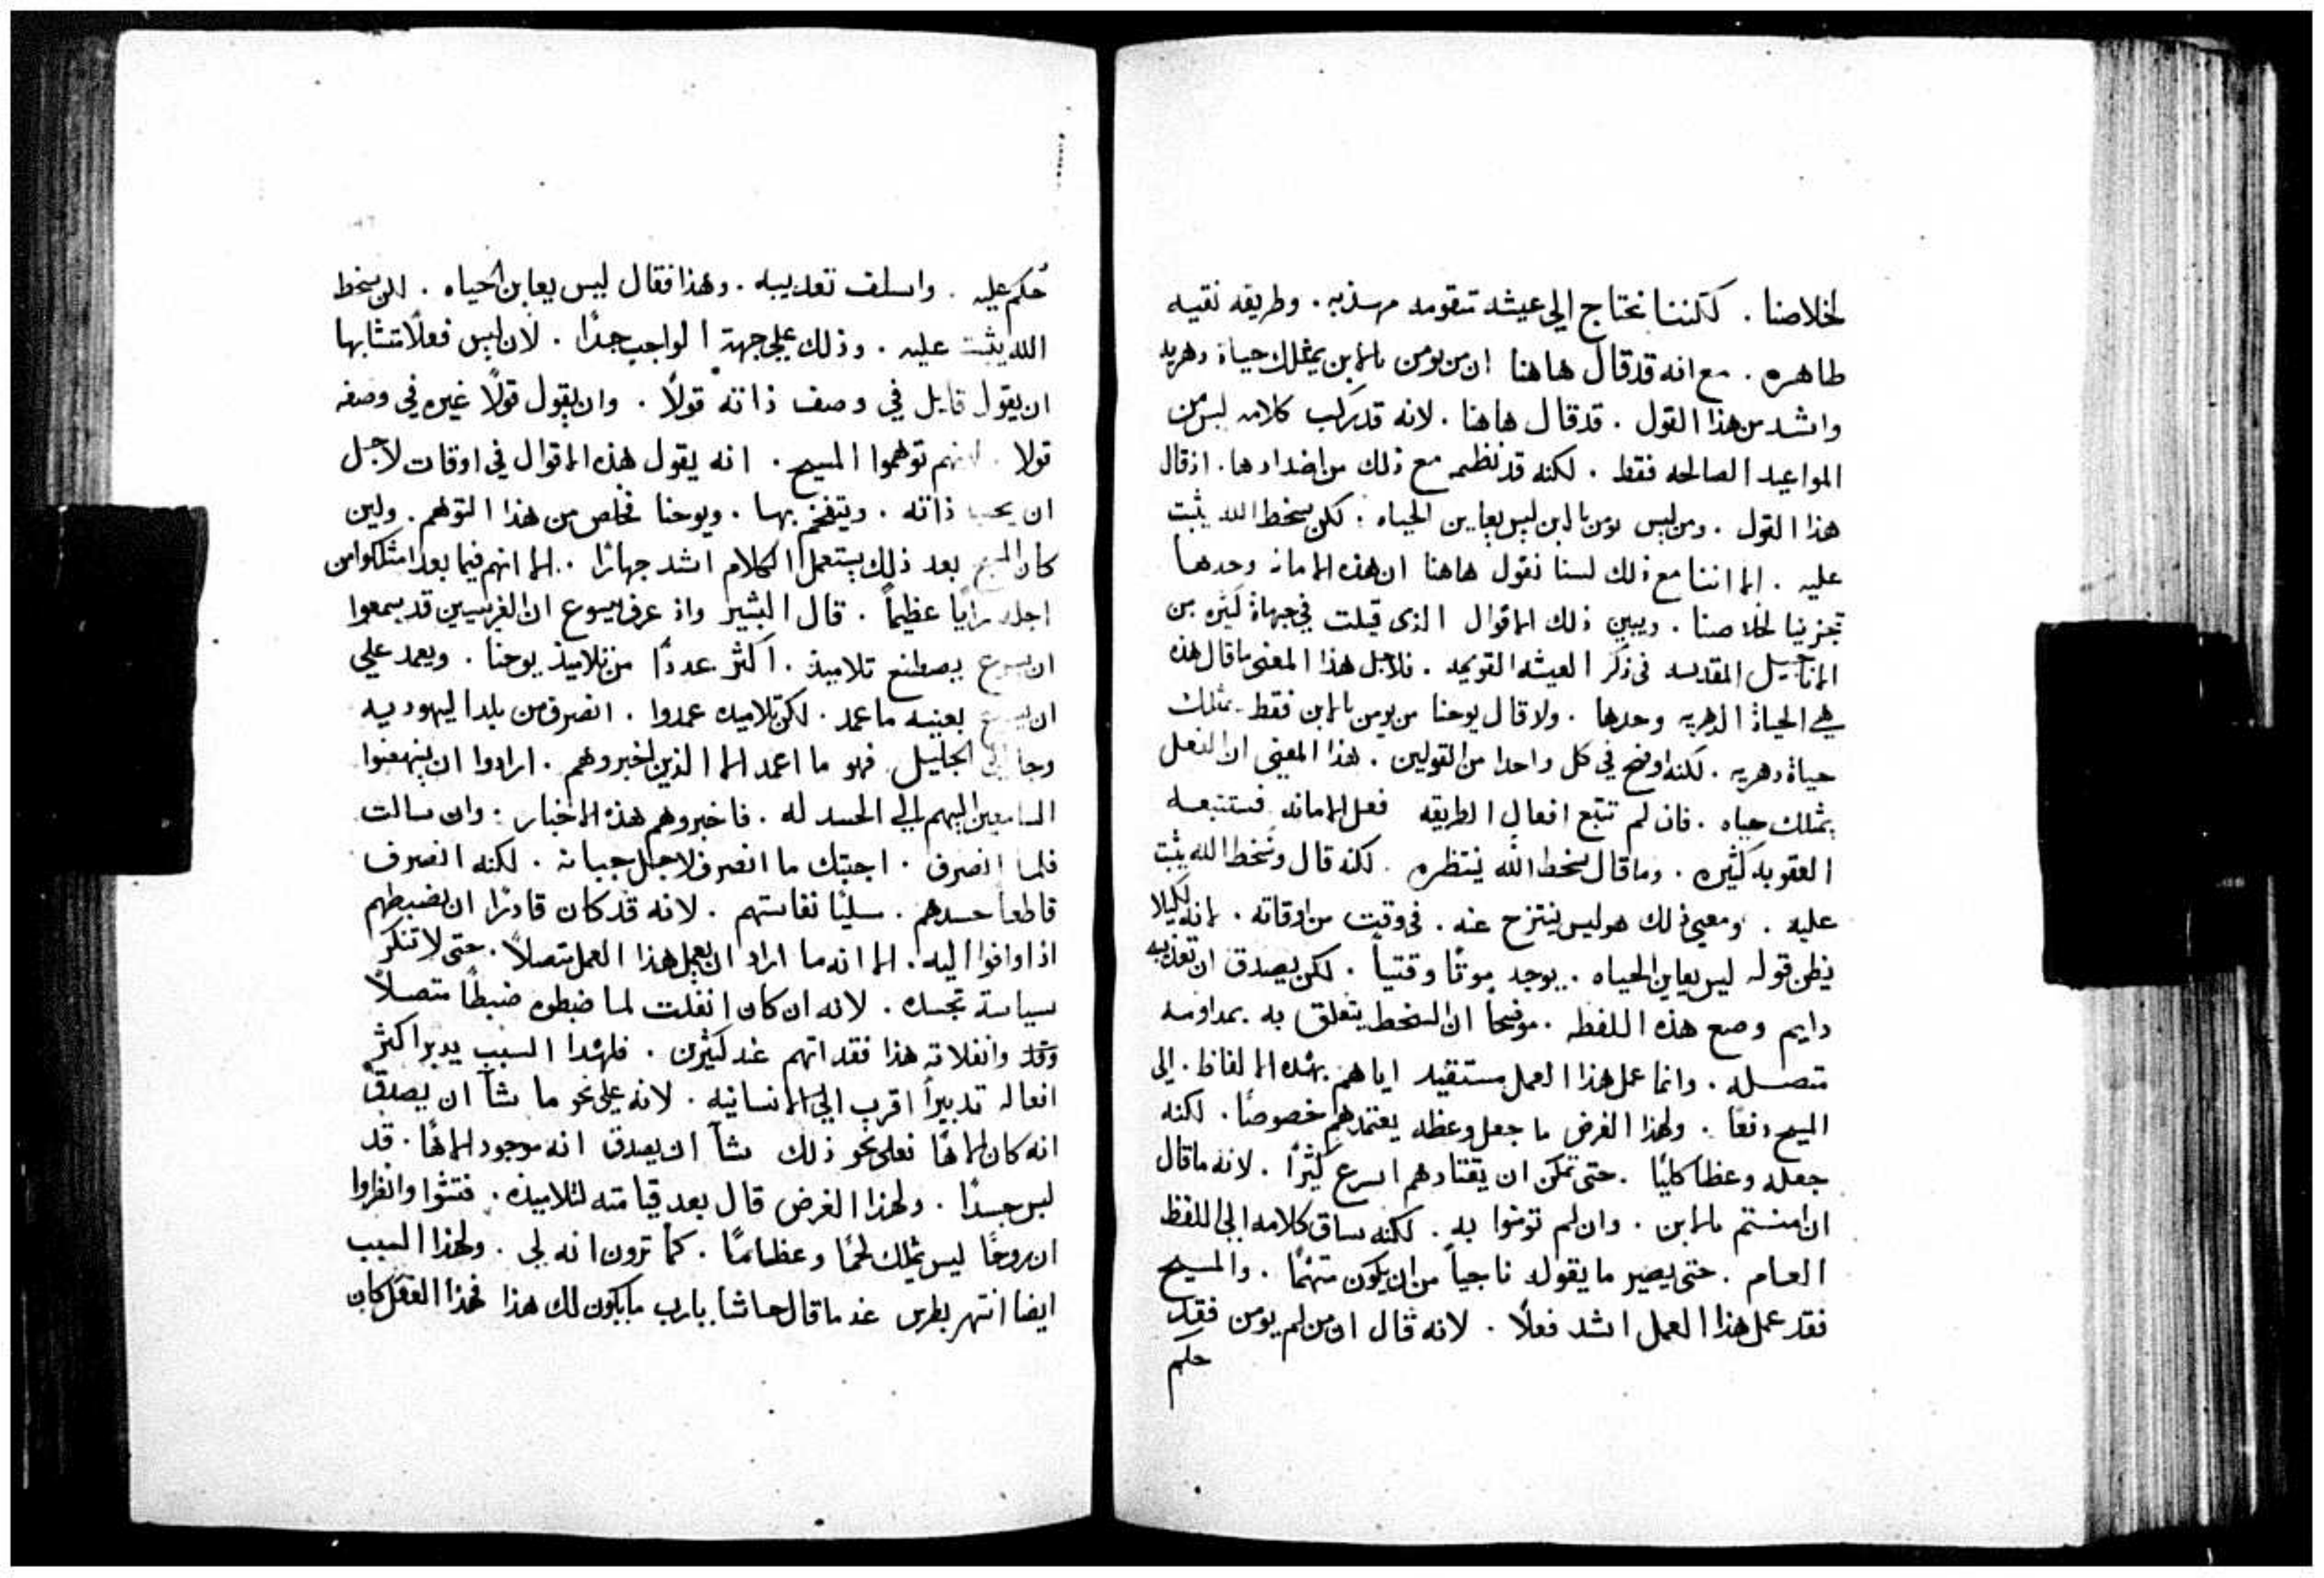 لخلاصنا . لكننا نحتاج الى عيشه متقومه مهذبه . وطريقه نقيه
طاهره . مع انه قد قال هاهنا ان من يومن بالابن يمتلك حياة دهريه
واشد من هذا القول . قد قال هاهنا . لانه قد ركب كلامه ليس من
المواعيد الصالحه فقط . لكنه قد نظمه مع ذلك من اضدادها . اذ قال
هذا القول . ومن ليس يومن بالابن ليس يعاين الحياه . لكن سخط الله يثبت
عليه . الا اننا مع ذلك لسنا نقول هاهنا ان هذه الامانه وحدها
تجزينا لخلاصنا . ويبين ذلك الاقوال الذى قيلت في جهاة كثيره من
الاناجيل المقدسه فى ذكر العيشه القويمه . فلاجل هذا المعنى ما قال هذه
هي الحياة الدهريه وحدها . ولا قال يوحنا من يومن بالابن فقط يمتلك
حياة دهريه . لكنه اوضح في كل واحدا من القولين . هذا المعنى ان الفعل
يمتلك حياه . فان لم تتبع افعال الطريقه فعل الامانه فستتبعه
العقوبه كثيره . وما قال سخط الله ينتظره . لكنه قال وسخط الله يثبت
عليه . ومعنى ذلك هو ليس ينتزح عنه . فى وقت من اوقاته . لانه لكيلا
يظن قوله ليس يعاين الحياه . يوجد موتًا وقتياً . لكن يصدق ان تعذيبه
دايم وضع هذه اللفظه . موضحا ان السخط يتعلق به بمداومه
متصله . وانما عمل هذا العمل مستقيد اياهم بهذه الالفاظ . الى
المسيح دفعًا . ولهذا الغرض ما جعل وعظه يعتمدهم خصوصًا . لكنه
جعله وعظاً كليًا . حتى تمكن ان يقتادهم اسرع كثيرًا . لانه ما قال
ان امنتم بالابن . وان لم تومنوا به . لكنه ساق كلامه الى اللفظ
العام . حتى يصير ما يقوله ناجياً من ان يكون متهمًا . والمسيح
فقد عمل هذا العمل اشد فعلًا . لانه قال ان من لم يومن فقد
حكم
حُكم عليه . واسلف تعذيبه . وهذا فقال ليس يعاين الحياه . لكن سخط
الله يثبت عليه . وذلك على جهة الواجب جدًا . لان ليس فعلًا متشابها
ان يقول قايل في وصف ذاته قولًا . وان يقول قولًا غيره في وصفه
قولا . لانهم توهموا المسيح . انه يقول هذه الاقوال في اوقات لاجل
ان يحب ذاته . ويتفخم بها . ويوحنا فخلص من هذا التوهم . ولين
كان المسيح بعد ذلك يستعمل الكلام اشد جهارًا . الا انهم فيما بعد امتلكوا من
اجله رايًا عظيماً . قال البشير واذ عرف يسوع ان الفريسيين قد سمعوا
ان يسوع يصطنع تلاميذ . اكثر عددًا من تلاميذ يوحنا . ويعمد على
ان يسوع بعينه ما عمد . لكن تلاميذه عمدوا . انصرف من بلد اليهوديه
وجا الى الجليل فهو ما اعمد الا الذين اخبروهم . ارادوا ان ينهضوا
السامعين اليهم الى الحسد له . فاخبروهم هذه الاخبار : وان سالت
فلما انصرف . اجبتك ما انصرف لاجل جبانه . لكنه انصرف
قاطعا حسدهم . مسليًا نفاستهم . لانه قد كان قادرًا ان يضبطهم
اذا وافوا اليه . الا انه ما اراد ان يعمل هذا العمل متصلاً . حتى لا تنكر
سياسة تجسده . لانه ان كان انفلت لما ضبطوه ضبطًا متصلًا
وقد وانفلاته هذا فقد اتهم عند كثيرين . فلهذا السبب يدبر اكثر
افعاله تدبيراً اقرب الى الانسانيه . لانه على نحو ما شآ ان يصدق
انه كان الاهًا فعلى نحو ذلك شآ ان يصدق انه موجود الاهًا . قد
لبس جسدًا . ولهذا الغرض قال بعد قيامته لتلاميذه . فتشوا وانظروا
ان روحًا ليس تملك لحمًا وعظامًا . كما ترون انه لى . ولهذا السبب
ايضا انتهر بطرس عند ما قال حاشا يارب ما يكون لك هذا فهذا الفعل كان